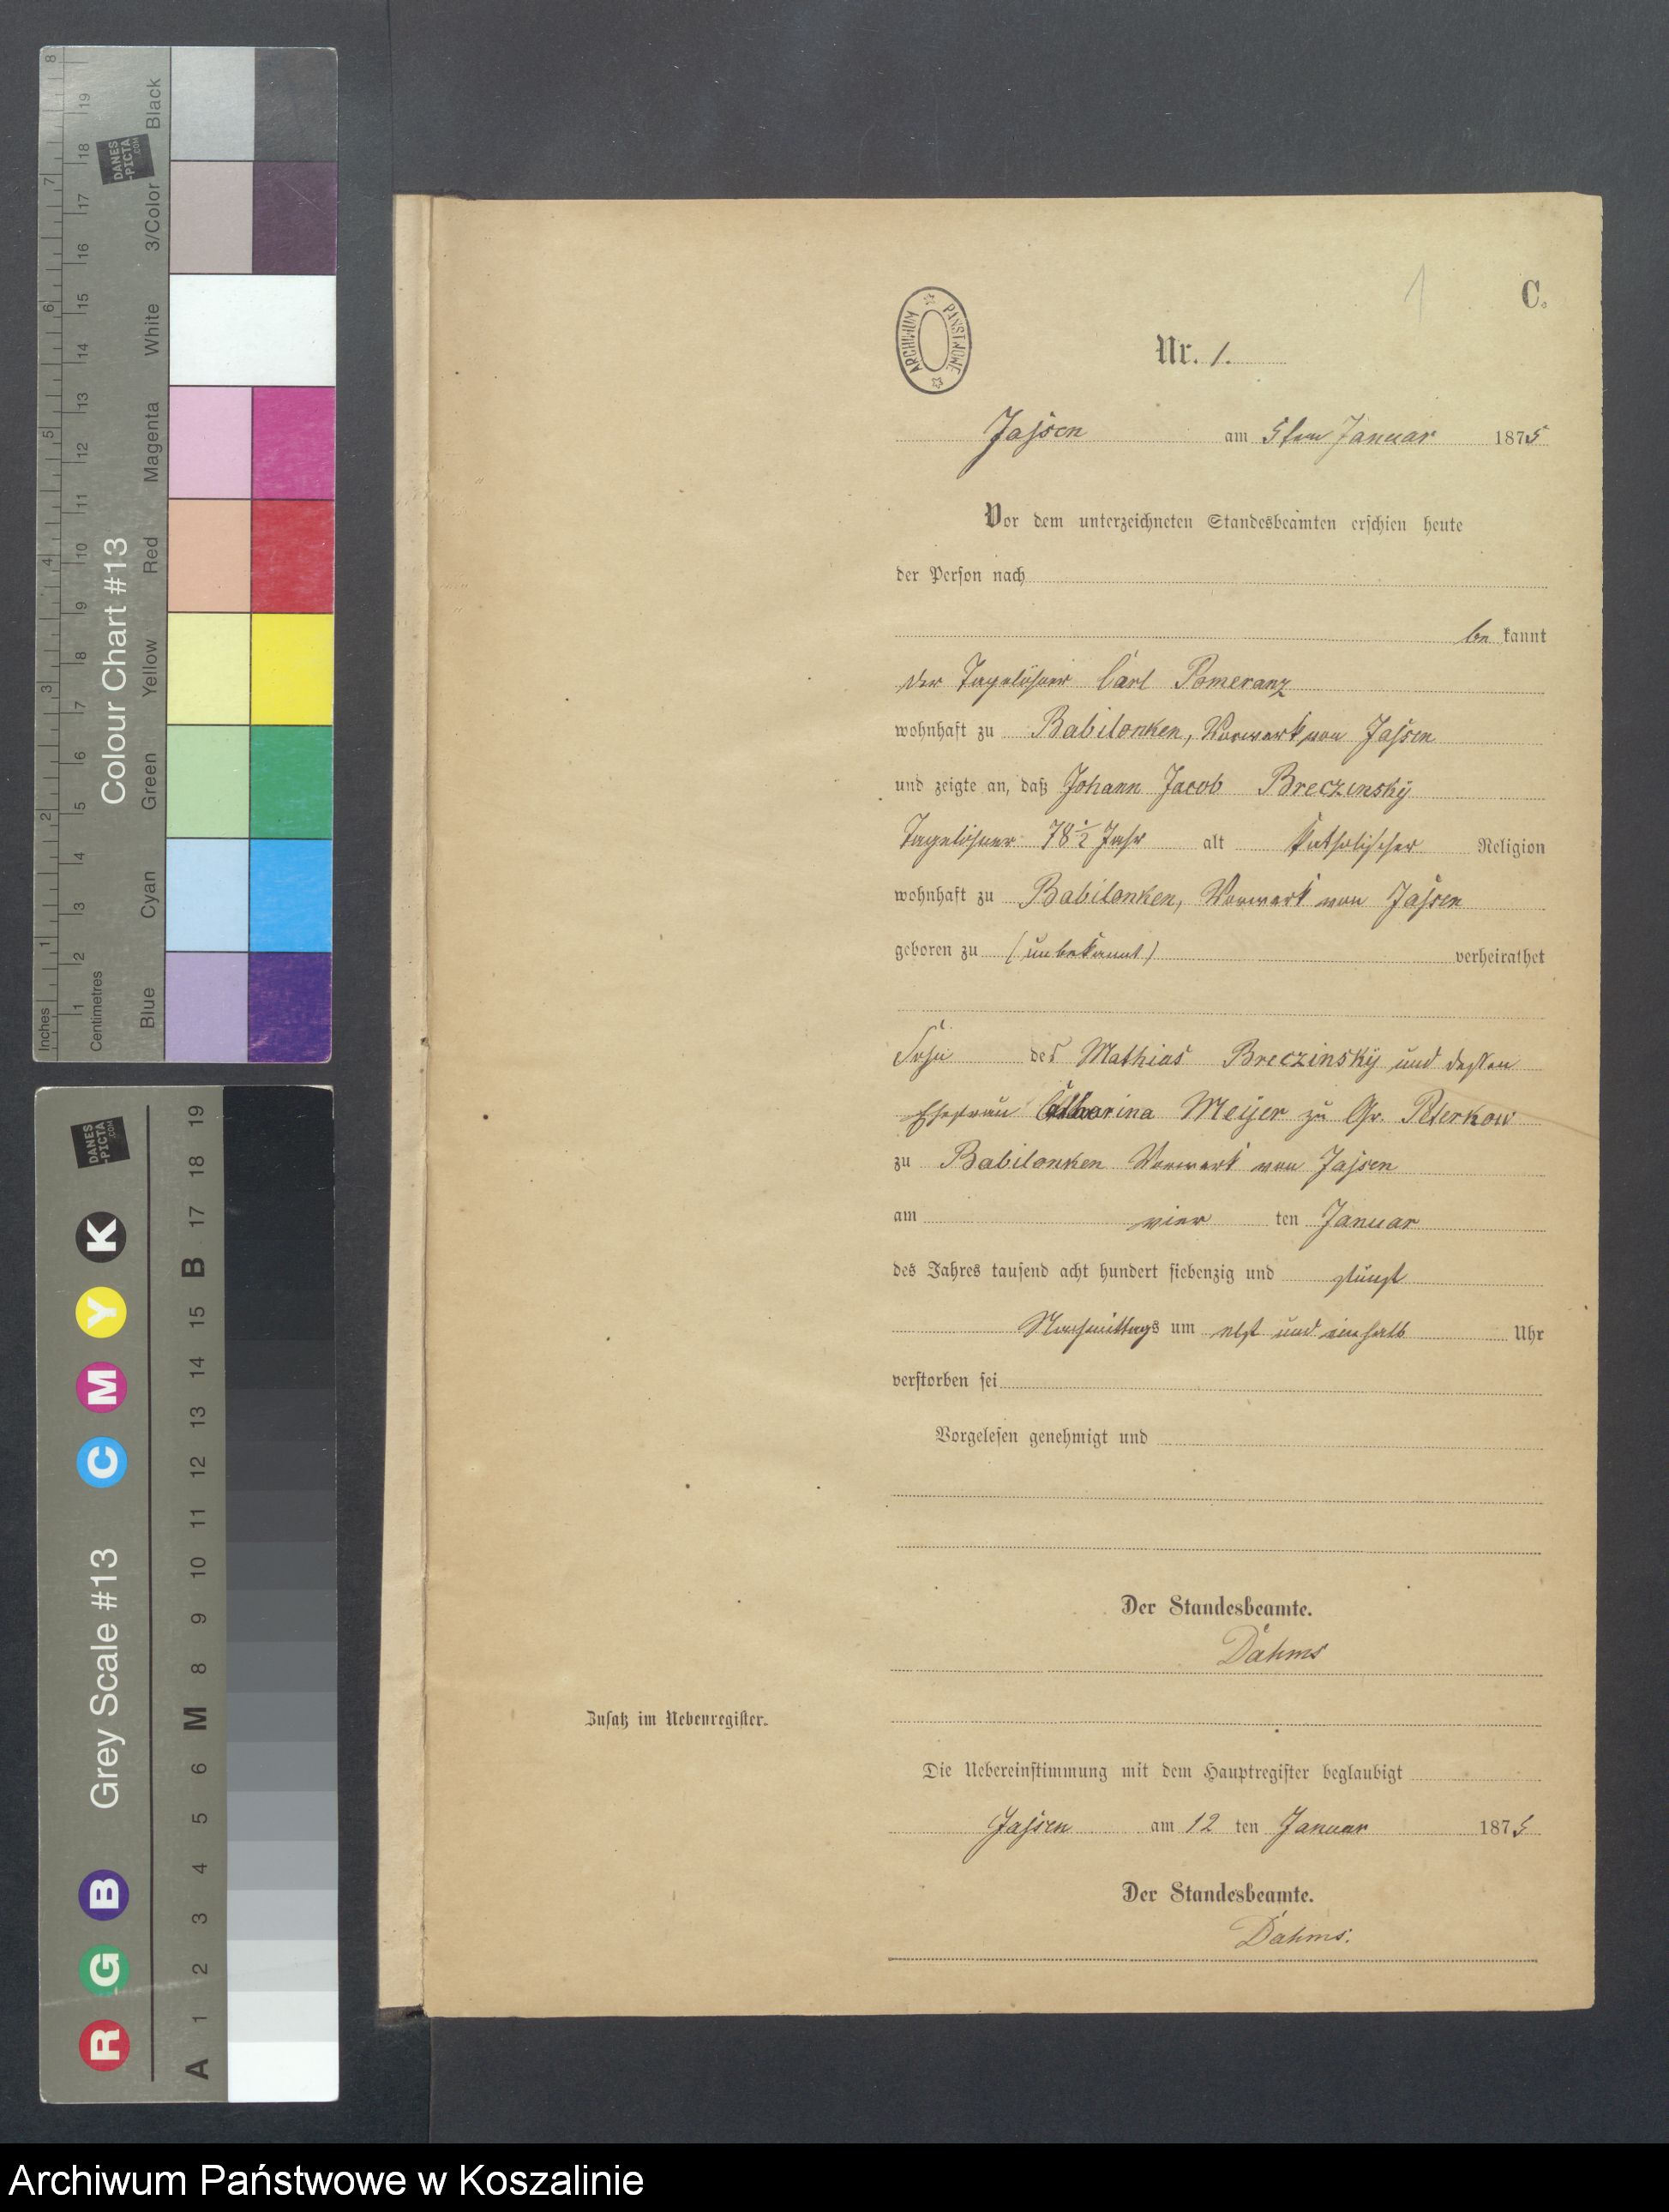 C.
1
ARCHIWUM PAŃSTWOWE
Nr. 1.
Jassen am 5ten Januar 1875
Vor dem unterzeichneten Standesbeamten erschien heute
der Person nach
be kannt
der Tagelöhner Carl Pomeranz
wohnhaft zu Babilonken, Vorwerk von Jassen
und zeigte an, daß Johann Jacob Breczinsky
Tagelöhner 78 1/2 Jahr alt katholischer Religion
wohnhaft zu Babilonken, Vorwerk von Jassen
geboren zu (unbekannt) verheirathet
Sohn des Mathias Breczinsky und dessen
Ehefrau Catharina Meyer zu Gr. Peterkow
zu Babilonken Vorwerk von Jassen
am vier ten Januar
des Jahres tausend acht hundert siebenzig und fünf
Nachmittags um elf und ein halb Uhr
verstorben sei
Vorgelesen genehmigt und
Der Standesbeamte.
Dahms
Zusatz im Nebenregister.
Die Uebereinstimmung mit dem Hauptregister beglaubigt
Jassen am 12 ten Januar 1875
Der Standesbeamte.
Dahms.
Inches 1 2 3 4 5 6 7 8
Centimetres 1 2 3 4 5 6 7 8 9 10 11 12 13 14 15 16 17 18 19
Colour Chart #13
Blue Cyan Green Yellow Red Magenta White 3/Color Black
DANES-PICTA.COM
Grey Scale #13
R G B C M Y K
A 1 2 3 4 5 6 M 8 9 10 11 12 13 14 15 B 17 18 19
DANES-PICTA.COM
Archiwum Państwowe w Koszalinie